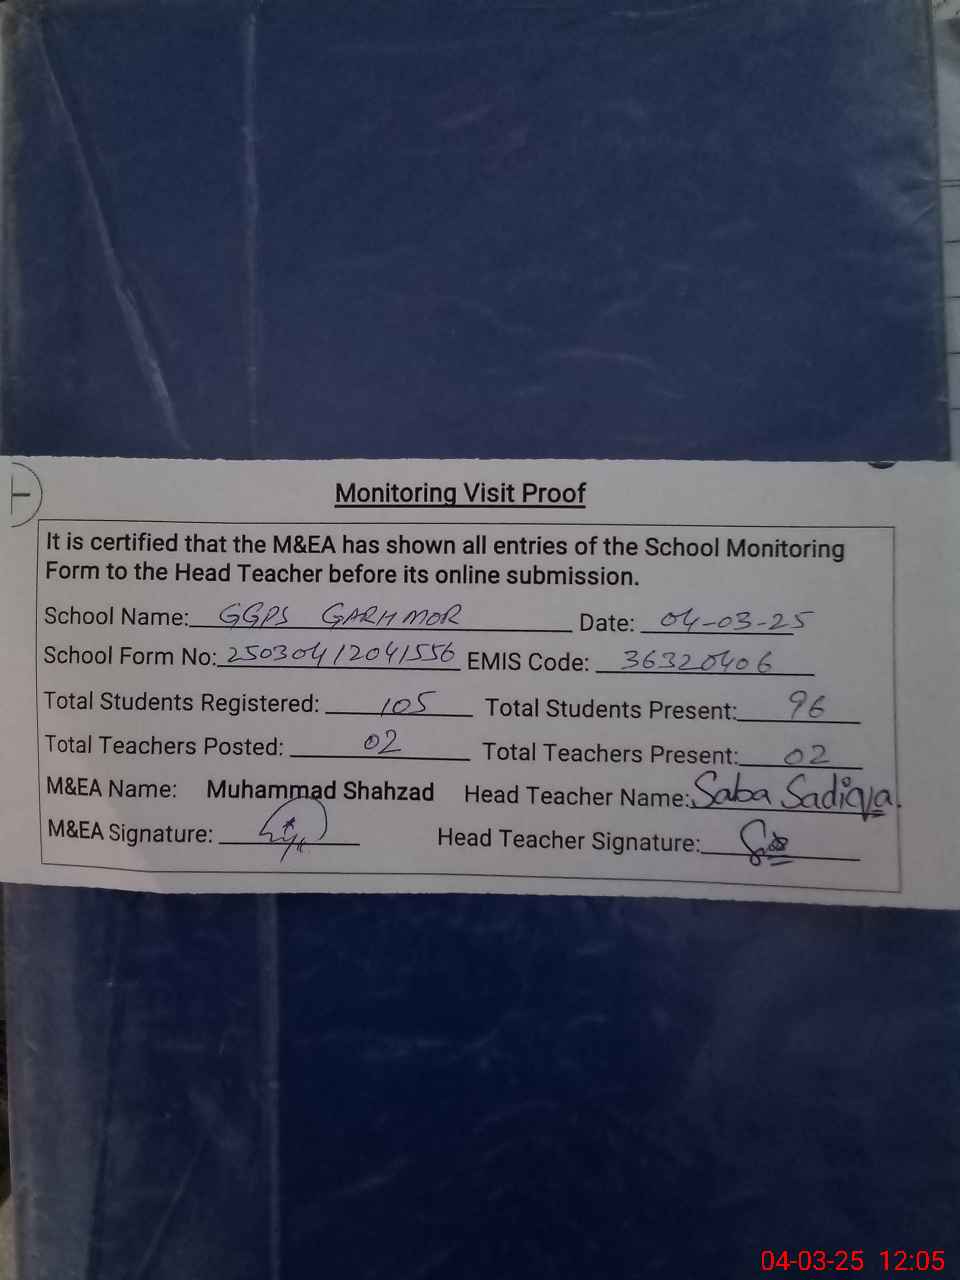 Monitoring Visit Proof
It is certified that the M&EA has shown all entries of the School Monitoring
Form to the Head Teacher before its online submission.
School Name: GGPS GARH MOR Date: 04-03-25
School Form No: 25030412041556 EMIS Code: 36320406
Total Students Registered: 105 Total Students Present: 96
Total Teachers Posted: 02 Total Teachers Present: 02
M&EA Name: Muhammad Shahzad Head Teacher Name: Saba Sadiqa.
M&EA Signature: Head Teacher Signature:
04-03-25 12:05